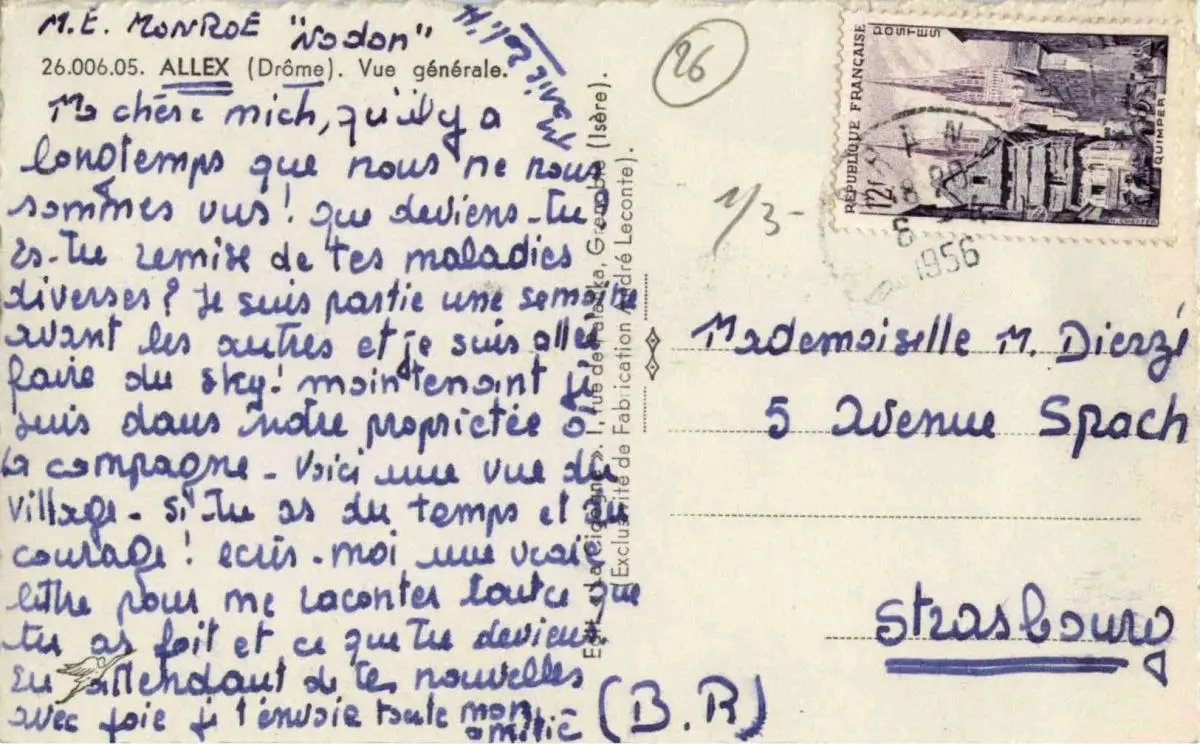 M.E. MONROE "Nodon"
26.006.05. ALLEX (Drôme). Vue générale.
Ma chère mich, qu'il y a
longtemps que nous ne nous
sommes vus! que deviens-tu?
Es-tu remise de tes maladies
diverses? Je suis partie une semaine
avant les autres et je suis allée
faire du sky! maintenant je
suis dans notre propriétée à
la campagne - Voici une vue du
village - Si tu as du temps et du
courage! ecris-moi une vraie
lettre pour me raconter tout ce que
tu as fait et ce que tu deviens.
En attendant de tes nouvelles
avec joie je t'envoie toute mon
amitié -
Marie
Edit. « La Cigogne », 1, rue de Palanka, Grenoble (Isère).
(Exclusivité de Fabrication André Leconte).
26
1/3-
RÉPUBLIQUE FRANÇAISE
POSTES
12f
QUIMPER
8
1956
Mademoiselle M. Dierzé
5 Avenue Spach
Strasbourg
(B.R)